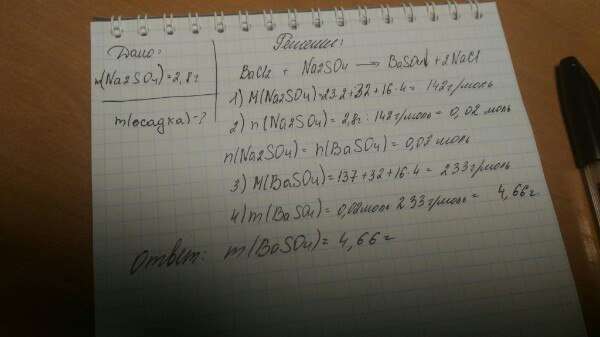 Дано:
m(Na2SO4)=2,8г
m(осадка)-?
Решение:
BaCl2 + Na2SO4 → BaSO4↓+2NaCl
1) M(Na2SO4)=23·2+32+16·4= 142г/моль
2) n(Na2SO4)= 2,8г: 142г/моль= 0,02 моль
n(Na2SO4)= n(BaSO4)= 0,02 моль
3) M(BaSO4)= 137+32+16·4= 233г/моль
4) m(BaSO4)= 0,02моль· 233г/моль= 4,66г
Ответ: m(BaSO4)= 4,66г